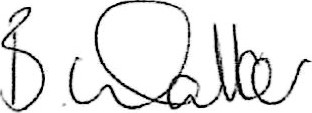 B. Walker